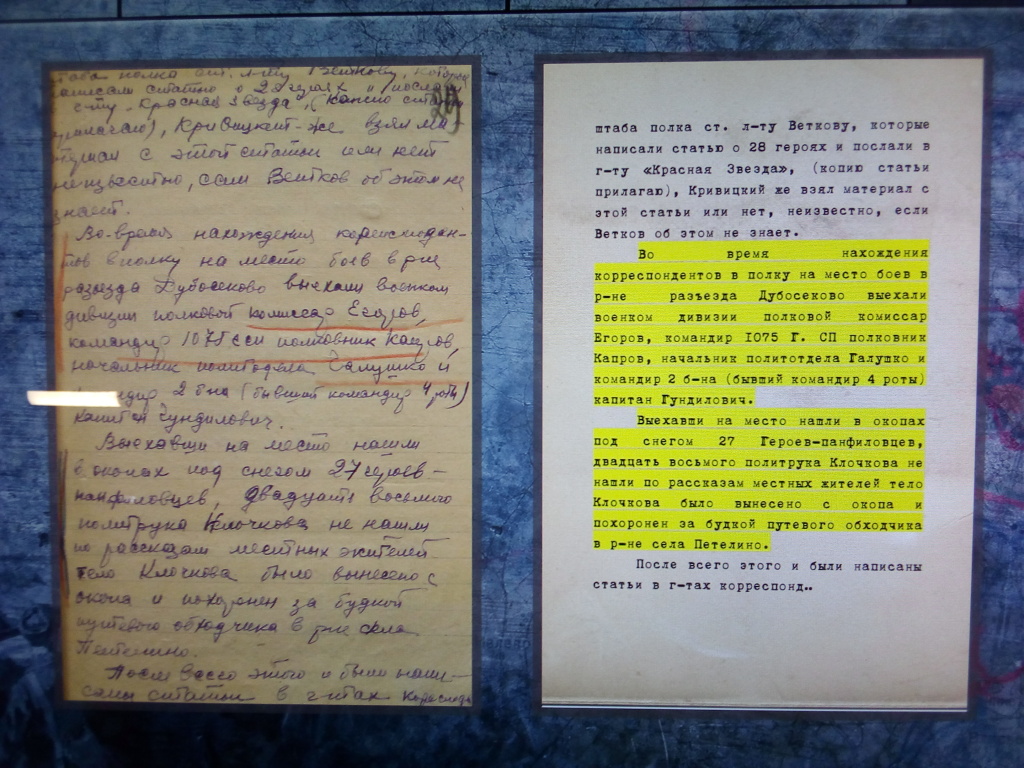 штаба полка ст. л-ту Веткову, которые
написали статью о 2 героях и послали
с-ту. Красная Звезда", (копию статьи
прилагаю), Кривицкий-же взял ма
териал с этой статьи или нет
неизвестно, если Ветков об этом не
знает.
Во-время нахождения кореспонден-
тов в полку на место боев в р-не
разъезда Дубосеково выехали военком
дивизии полковой комиссар Егоров,
командир 1075 ссп полковник Капров,
начальник политодела Галушко и
2 б-на (бывший командир 4 роты)
капитан Гундилович.
Выехавши на место нашли
в окопах под снегом 27 героев-
панфиловцев, двадцать восьмого
политрука Клочкова не нашли
по рассказам местных жителей
тело Клочкова было вынесено с
окопа и похоронен за будкой
путевого обходчика в р-не села
Петелино.
После всего этого и были напи-
саны статьи в г-тах
29
штаба полка ст. л-ту Веткову, которые
написали статью о 28 героях и послали в
г-ту «Красная Звезда», (копию статьи
прилагаю), Кривицкий же взял материал с
этой статьи или нет, неизвестно, если
Ветков об этом не знает.
Во время нахождения
корреспондентов в полку на место боев в
р-не разъезда Дубосеково выехали
военком дивизии полковой комиссар
Егоров, командир I075 Г. СП полковник
Капров, начальник политотдела Галушко и
командир 2 б-на (бывший командир 4 роты)
капитан Гундилович.
Выехавши на место нашли в окопах
под снегом 27 Героев-панфиловцев,
двадцать восьмого политрука Клочкова не
нашли по рассказам местных жителей тело
Клочкова было вынесено с окопа и
похоронен за будкой путевого обходчика
в р-не села Петелино.
После всего этого и были написаны
статьи в г-тах корреспонд..